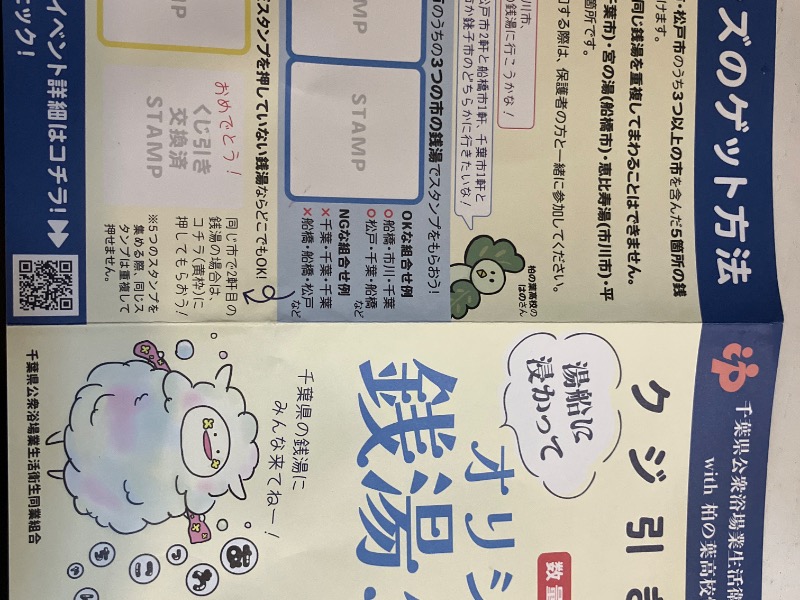 ズのゲット方法
・松戸市のうち3つ以上の市を含んだ5箇所の銭
けます。
同じ銭湯を重複してまわることはできません。
千葉市)・宮の湯(船橋市)・恵比寿湯(市川市)・平
箇所です。
加する際は、保護者の方と一緒に参加してください。
川市、
銭湯に行こうかな!
松戸市2軒と船橋市1軒、千葉市1軒と
市か銚子市のどちらかに行きたいな!
柏の葉高校の
はのさん
市のうちの3つの市の銭湯でスタンプをもらおう!
STAMP
STAMP
OKな組合せ例
○船橋・市川・千葉
○松戸・千葉・船橋
など
NGな組合せ例
×千葉・千葉・千葉
×船橋・船橋・松戸
など
スタンプを押していない銭湯ならどこでもOK!
おめでとう!
くじ引き
交換済
STAMP
同じ市で2軒目の
銭湯の場合は、
コチラ(黄枠)に
押してもらおう!
※5つのスタンプを
集める際、同じス
タンプは重複して
押せません。
イベント詳細はコチラ!
ェック!
千葉県公衆浴場業生活衛
with 柏の葉高校
クジ引き
湯船に
浸かって
オリジ
銭湯
数量
千葉県の銭湯に
みんな来てねー!
千葉県公衆浴場業生活衛生同業組合